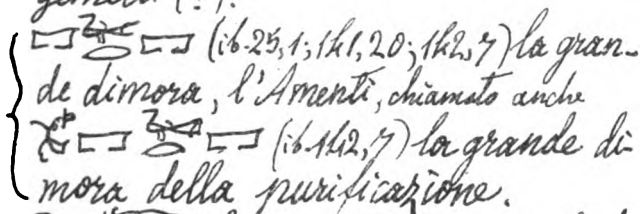 (ib. 25,1; 141,20; 142,7) la gran-
de dimora, l'Amenti, chiamato anche
(ib. 142,7) la grande di-
mora della purificazione.